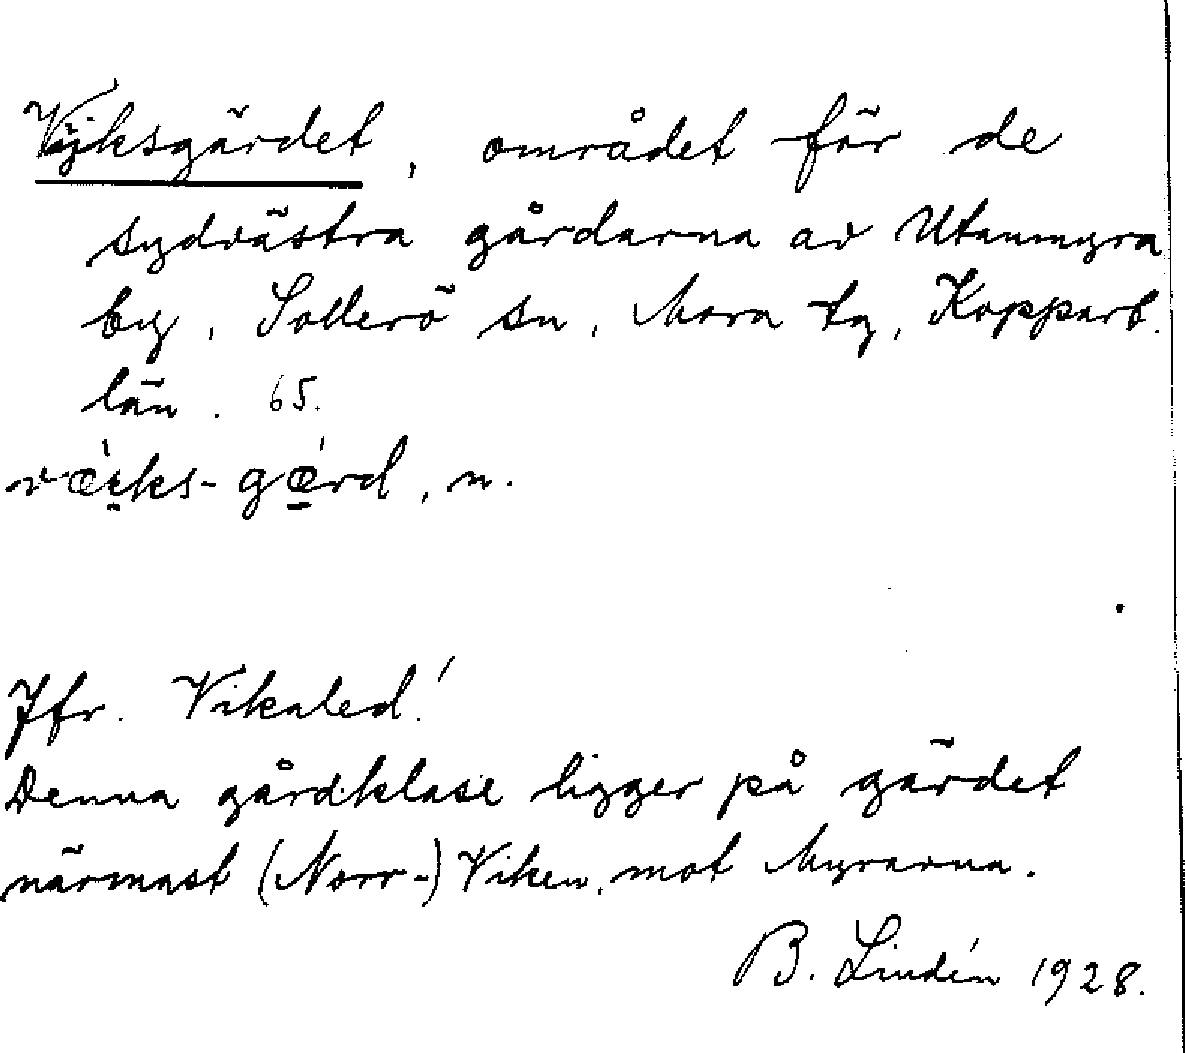 Vijksgärdet, området för de
sydvästra gårdarna av Utanmyra
by, Sollerö sn, Mora tg, Kopparb.
län. 65.
væ̀i̯ks-gæ̠̀rd, n.
Jfr. Vikaled!
Denna gårdklase ligger på gärdet
närmast (Norr-) Viken, mot Myrarna.
B. Lindén 1928.